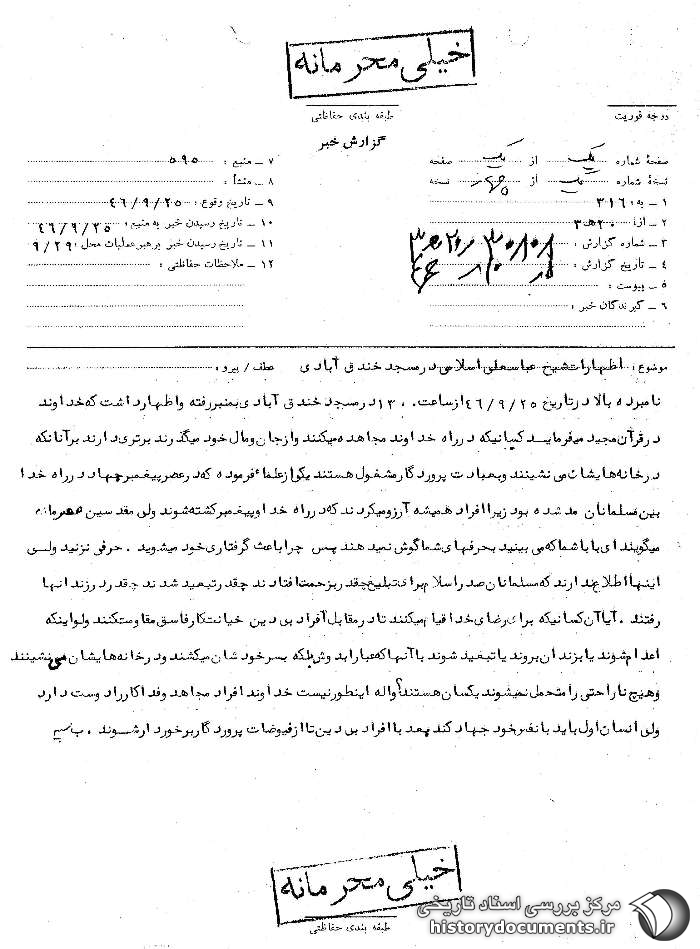 خیلی محرمانه
درجه فوریت
طبقه بندی حفاظتی
گزارش خبر
صفحهٔ شماره یک از یک صفحه
نسخهٔ شماره یک از چهار نسخه
۱ ــ به: ۳۱۶
۲ ــ از: ۲۰ هـ ۳
۳ ــ شماره گزارش :
۴ ــ تاریخ گزارش :
۵ ــ پیوست :
۶ ــ گیرندگان خبر :
۷ ــ منبع : ۵۹۵
۸ ــ منشأ :
۹ ــ تاریخ وقوع : ۴۶/۹/۲۵
۱۰ ــ تاریخ رسیدن خبر به منبع : ۴۶/۹/۲۵
۱۱ ــ تاریخ رسیدن خبر برهبر عملیات محل : ۹/۲۹
۱۲ ــ ملاحظات حفاظتی :
موضوع : اظهارات شیخ عباسعلی اسلامی در مسجد خندق آبادی عطف / پیرو :
نامبرده بالا در تاریخ ۴۶/۹/۲۵ از ساعت ۱۳۰۰ در مسجد خندق آبادی بمنبر رفته و اظهار داشت که خداوند
در قرآن مجید میفرماید کسانیکه در راه خداوند مجاهده میکنند و از جان و مال خود میگذرند برتری دارند بر آنانکه
در خانه هایشان می نشینند و بعبادت پروردگار مشغول هستند یکی از علماء فرموده که در عصر پیغمبر جهاد در راه خدا
بین مسلمانان مد شده بود زیرا افراد همیشه آرزو میکردند که در راه خدا و پیغمبر کشته شوند ولی مقدسین عصر ما
میگویند ای بابا شما که می بینید بحرفهای شما گوش نمیدهند پس چرا باعث گرفتاری خود میشوید . حرفی نزنید ولی
اینها اطلاع ندارند که مسلمانان صدر اسلام برای تبلیغ چقدر بزحمت افتادند چقدر تبعید شدند چقدر در زندانها
رفتند . آیا آن کسانیکه برای رضای خدا قیام میکنند تا در مقابل آفراد بی دین خیانتکار فاسق مقاومت کنند ولو اینکه
اعدام شوند یا بزندان بروند یا تبعید شوند با آنها که عبا را بدوش بلکه بسر خودشان میکشند و در خانه هایشان می نشینند
و هیچ ناراحتی را متحمل نمیشوند یکسان هستند؟ واله اینطور نیست خداوند افراد مجاهد و فداکار را دوست دارد
ولی انسان اول باید با نفس خود جهاد کند بعد با افراد بی دین تا از فیوضات پروردگار برخوردار شوند .
خیلی محرمانه
طبقه بندی حفاظتی
مرکز بررسی اسناد تاریخی
historydocuments.ir